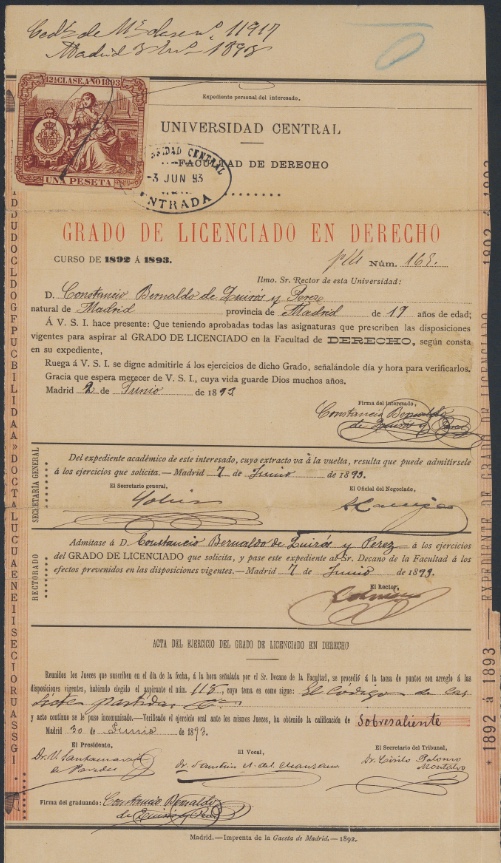 Madrid 1893
12ª CLASE. AÑO 1893
UNA PESETA
Expediente personal del interesado.
UNIVERSIDAD CENTRAL
FACULTAD DE DERECHO
3 JUN 93
ENTRADA
GRADO DE LICENCIADO EN DERECHO
CURSO DE 1892 Á 1893. Núm. 168.
Ilmo. Sr. Rector de esta Universidad:
D. Constancio Bernaldo de Quirós y Perez
natural de Madrid provincia de Madrid de 19 años de edad;
Á V. S. I. hace presente: Que teniendo aprobadas todas las asignaturas que prescriben las disposiciones
vigentes para aspirar al GRADO DE LICENCIADO en la Facultad de DERECHO, según consta
en su expediente,
Ruega á V. S. I. se digne admitirle á los ejercicios de dicho Grado, señalándole día y hora para verificarlos.
Gracia que espera merecer de V. S. I., cuya vida guarde Dios muchos años.
Madrid 2 de Junio de 1893
Firma del interesado,
Constancio Bernaldo
de Quirós y Perez
SECRETARÍA GENERAL
Del expediente académico de este interesado, cuyo extracto va á la vuelta, resulta que puede admitírsele
á los ejercicios que solicita.—Madrid 7 de Junio de 1893.
El Secretario general, El Oficial del Negociado,
RECTORADO
Admítase á D. Constancio Bernaldo de Quirós y Perez á los ejercicios
del GRADO DE LICENCIADO que solicita, y pase este expediente al Sr. Decano de la Facultad á los
efectos prevenidos en las disposiciones vigentes.—Madrid 7 de Junio de 1893.
El Rector,
ACTA DEL EJERCICIO DEL GRADO DE LICENCIADO EN DERECHO
Reunidos los Jueces que suscriben en el día de la fecha, á la hora señalada por el Sr. Decano de la Facultad, se procedió á la toma de puntos con arreglo á las
disposiciones vigentes, habiendo elegido el aspirante el núm. 113, cuyo tema es como sigue: El Código de las
siete partidas
y acto continuo se le puso incomunicado.—Verificado el ejercicio oral ante los mismos Jueces, ha obtenido la calificación de Sobresaliente
Madrid 30 de Junio de 1893.
El Presidente, El Vocal, El Secretario del Tribunal,
Firma del graduando: Constancio Bernaldo
de Quirós y Perez
Madrid.—Imprenta de la Gaceta de Madrid.—1892.
1892 á 1893